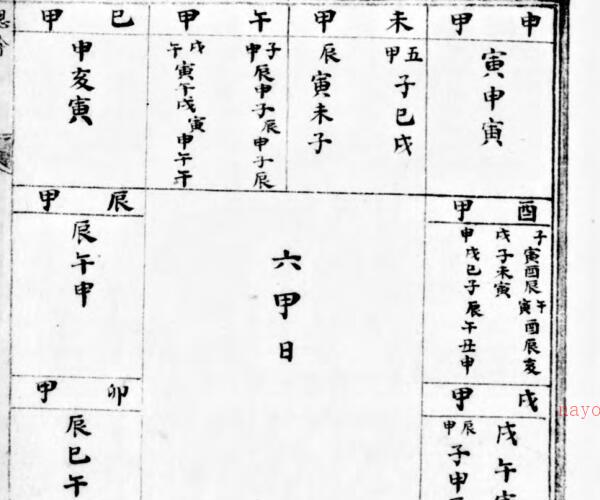 巳甲
申亥寅
午甲
子辰申子辰申子辰
申
戌寅午戌寅申午午
午
未甲
五子巳戌
甲
辰寅未子
申甲
寅申寅
辰甲
辰午申
六甲日
酉甲
子寅酉辰午酉辰亥
寅
戌子未寅
申戌巳子辰午丑申
卯甲
辰巳午
戌甲
戌午
辰子申
甲
nayo